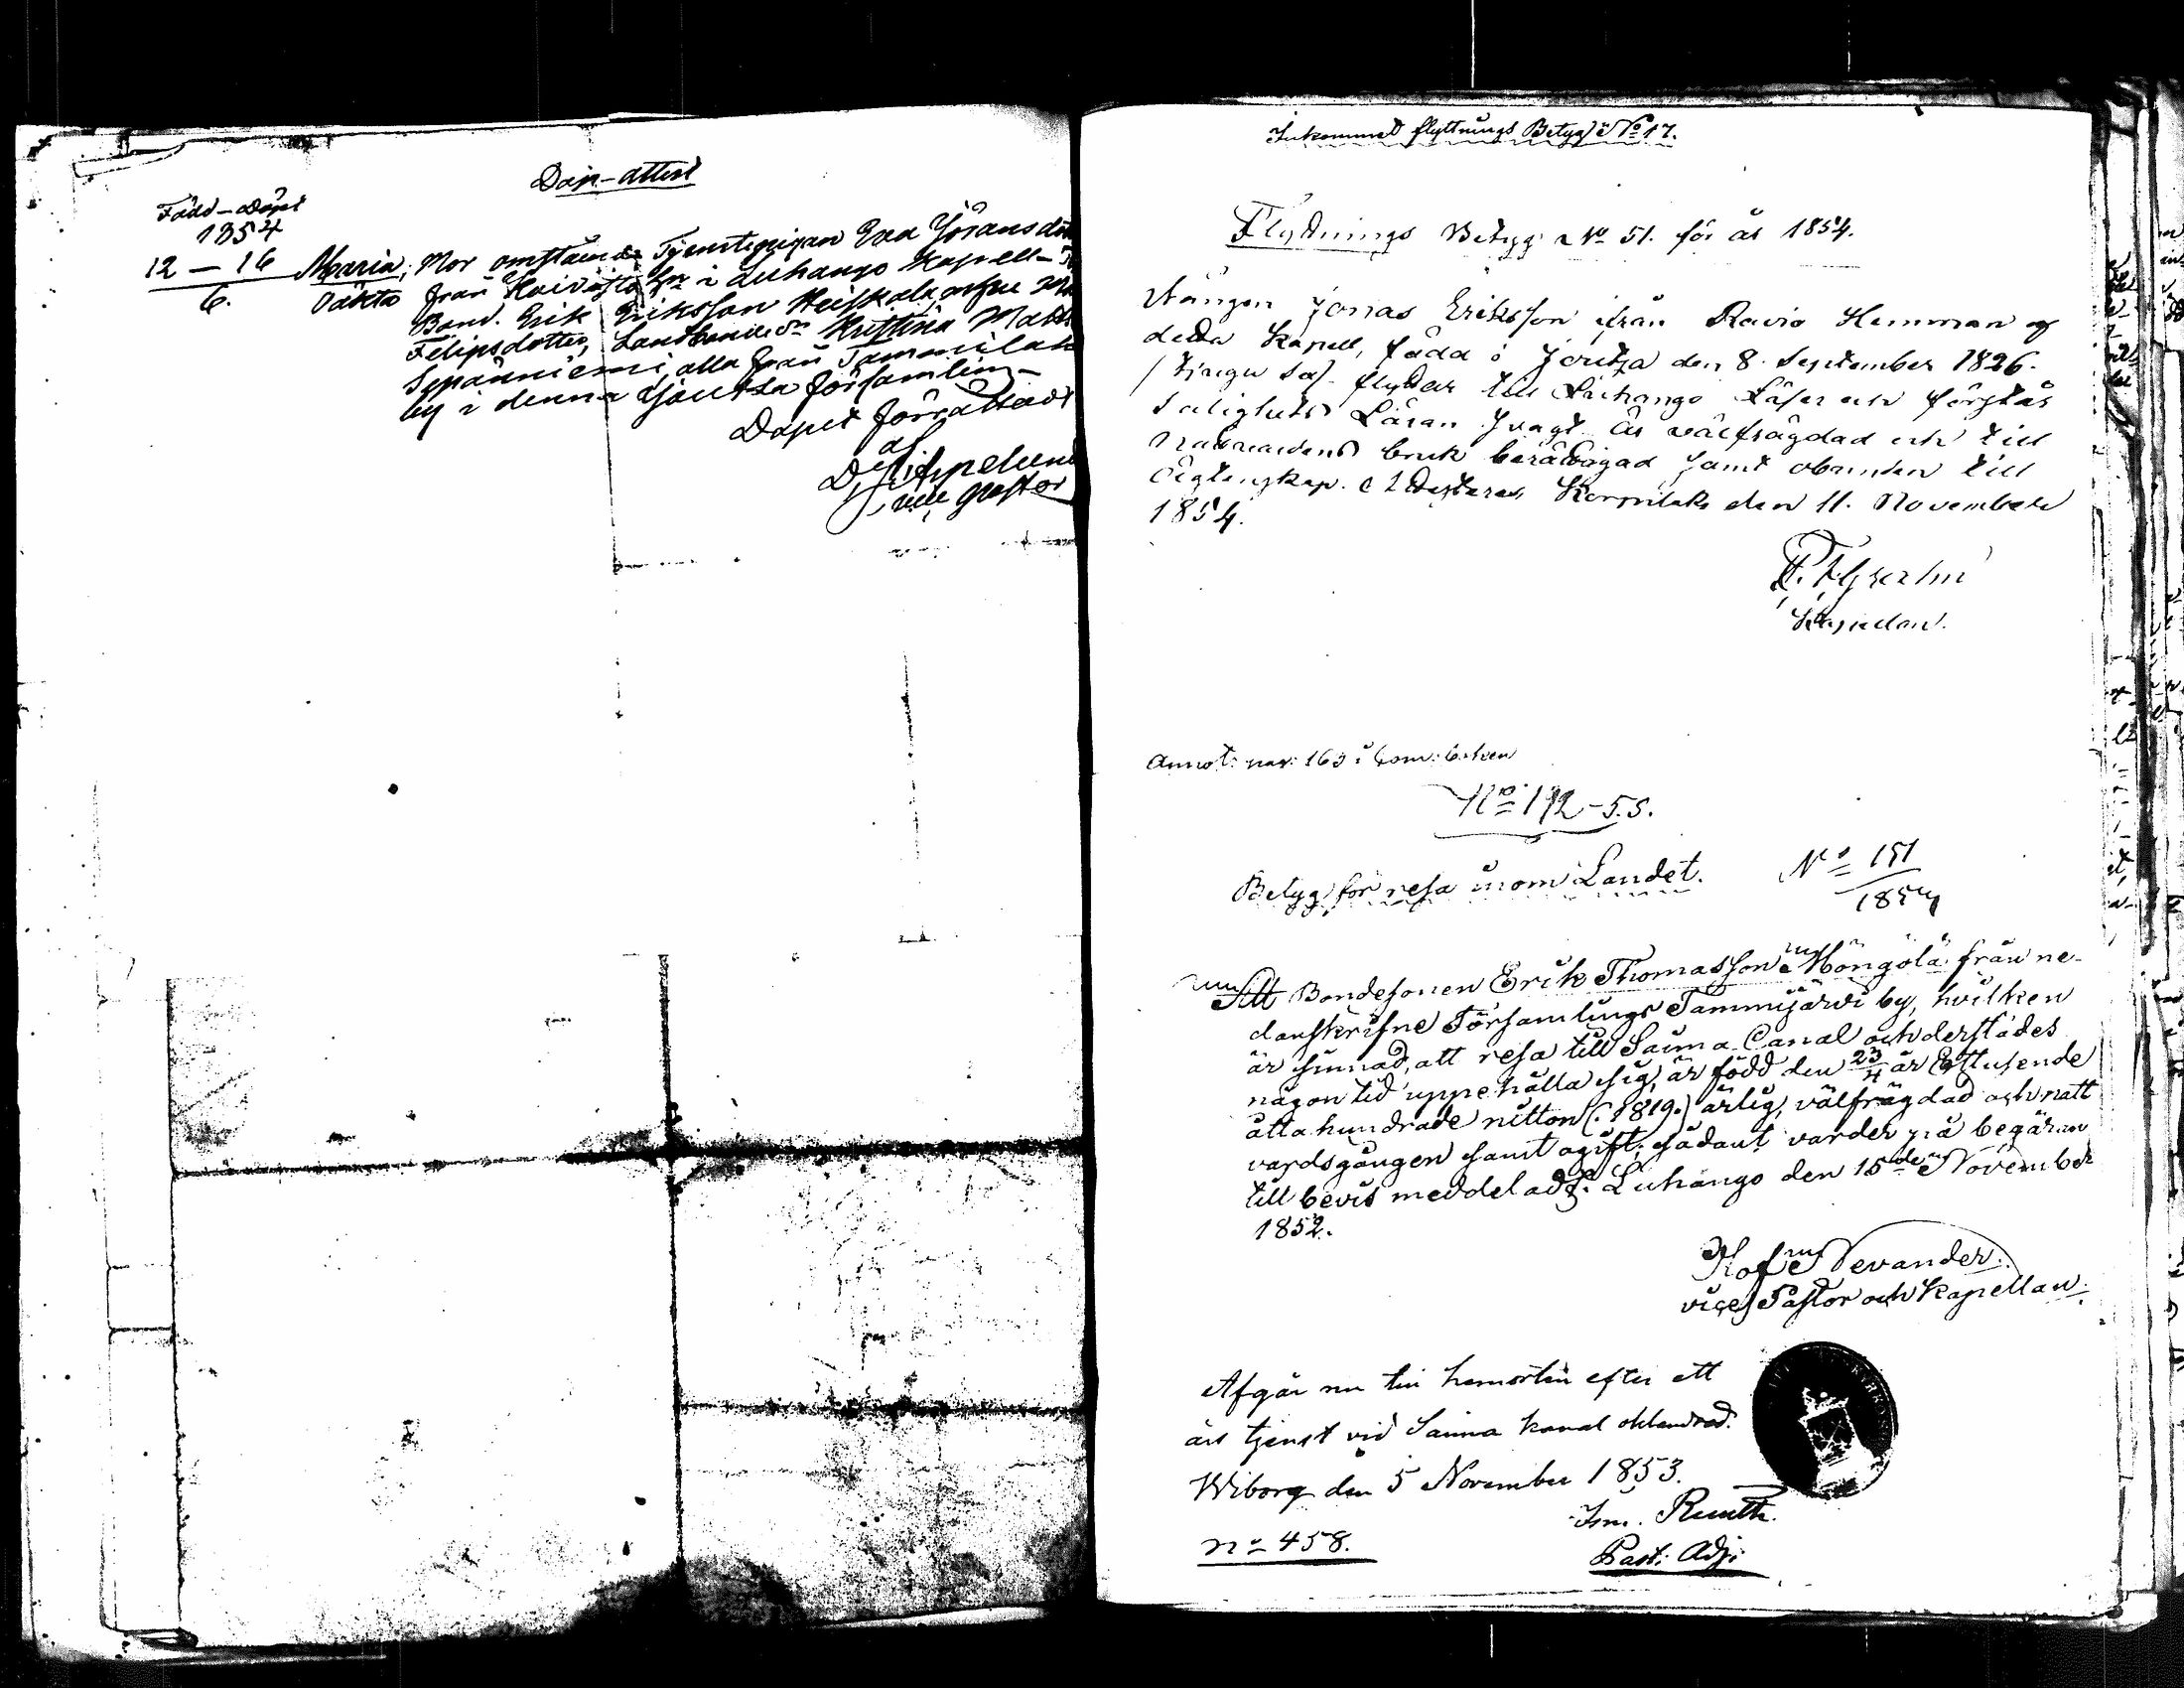 Dop-attest
Född-Döpt
1854
12 — 16 Maria, Mor omstående Tjenstepigan Eva Jöransdot
6. oäkta från Koivisto i Luhango Kapell-
Bond. Erik Eriksson Heiskala, 
Filipsdotter, Kristina Matts
Seppänniemi, alla från Tammilaks
by i denna Joutsa församling
Dopet förrättadt
af
vice Pastor
Inkommet flyttnings Betyg № 17.
Flyttnings Betyg № 51. för år 1854.
Drängen Jonas Eriksson ifrån Ravio Hemman af
detta Kapell, född i Joutsa den 8 September 1826.
flyttar till Luhango Läser och förstår
Salighets Läran svagt Är välfrägdad och till
Nattvardens bruk berättigad samt obunden till
Ägtenskap. Attesteras Korpilaks den 11. November
1854.
Kapellan.
Annot: pag: 163 i kom: boken
№ 192-55.
Betyg för resa inom Landet. № 151
1854
Att Bondesonen Erik Thomasson Höngölä från ne-
danskrifne Församlings Tammijärwi by, hvilken
är sinnad, att resa till Saima Canal och derstädes
någon tid uppehålla sig, är född den 23/4 år Ettusende
åtta hundrade nitton (:1819.) ärlig, välfrägdad och natt
vardsgången samt ogift; sådant varder på begäran
till bevis meddeladt. Luhango den 15de November
1852.
Olof Nevander.
vice Pastor och Kapellan.
Afgår nu till hemorten efter ett
års tjenst vid Saima kanal oklandrad.
Wiborg den 5 November 1853.
Past: Adj:
no 458.